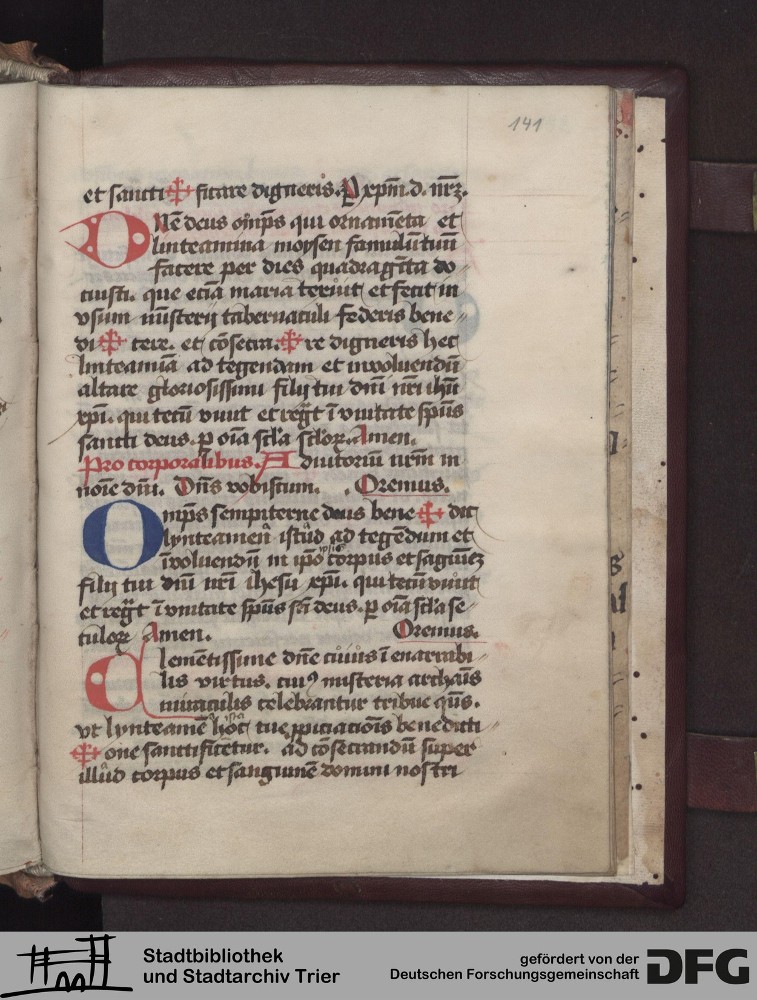 141
et sancti✠ficare digneris. P xp̄m. d. nr̄ꝫ.
Dn̄e deus om̄ps qui ornam̄eta et
linteamina moysen famulū tuū
facere per dies quadragīta do-
cuisti. que eciā maria texuit et fecit in
vsum mīsterij tabernaculi federis bene-
di✠cere. et cōsecra.✠re digneris hec
linteamīa ad tegendam et inuoluendū
altare gloriosissimi filij tui dn̄i nr̄i ihū
xp̄i. qui tecū viuit et regt̄ ī vnitate spūs
sancti deus. ꝑ oīa scl̄a scl̄oꝝ. Amen.
Pro corporalibus. Adiutoriū nrm̄ in
noīe dn̄i. Dn̄s vobiscum. Oremus.
Omp̄s sempiterne deus bene✠dic
lynteamen istud ad tegēdum et
īuoluendū in ip̄o corpus et sāguīeꝫ
filij tui dn̄i nr̄i ihesu xp̄i. qui tecū viuit
et regt̄ ī vnitate spūs sc̄i deus. ꝑ oīa scl̄a se-
culoꝝ Amen. Oremus.
Clemētissime dn̄e cuius ī enarrabi-
lis virtus. cuiꝰ misteria archāis
miraculis celebrantur tribue qs̄.
vt lynteamē hoc tue ꝓpiciaciōis benedicti
✠one sanctificetur. ad cōsecrandū super
illud corpus et sanguinē domini nostri
Stadtbibliothek
und Stadtarchiv Trier
gefördert von der
Deutschen Forschungsgemeinschaft
DFG